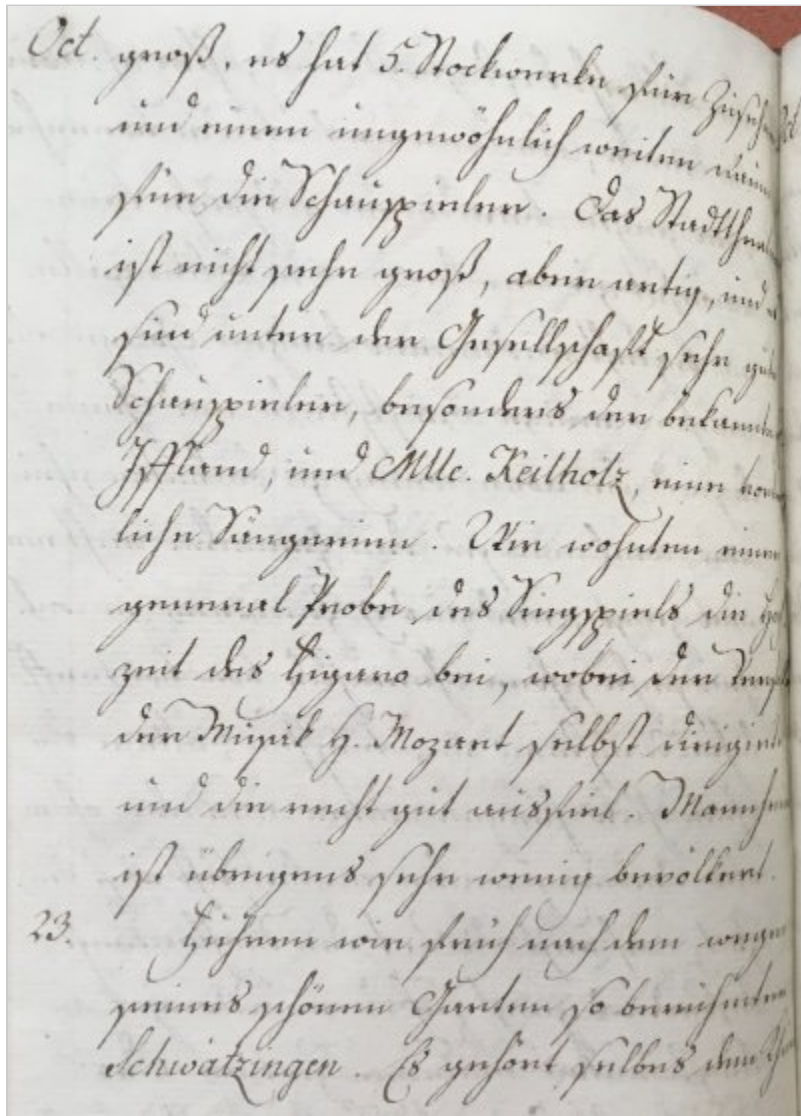 Oct. groß, es hat 5. Stockwerke für
und einen ungewöhnlich weiten
für die Schauspieler. Das
ist nicht sehr groß, aber artig, und
sind unter der Gesellschaft sehr
Schauspieler, besonders der
Iffland, und Mlle. Keilholz, eine
liche Sängerinn. Wir wohnten einer
general Probe des Singspiels die
zeit des Figaro bei, wobei der
der Musik H. Mozart selbst
und die recht gut ausfiel.
ist übrigens sehr wenig bevölkert.
23. Fuhren wir früh nach dem wegen
seines schönen Garten so berühmten
Schwätzingen. Es gehört selbes dem